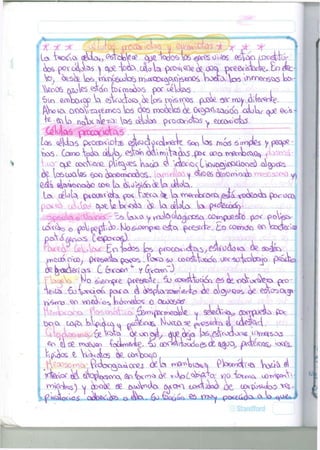 Células procariotas y eucariotas
La teoría celular, establece que todos los seres vivos están constitui-
dos por células y que toda célula proviene de una preexistente. En efec-
to, desde los minúsculos microorganismos hasta las inmensas ba-
llenas azules están formados por células.
Sin embargo la estructura de los mismos puede ser muy diferente.
Ahora analizaremos los dos modelos de organización celular que exis-
te en la naturaleza: las células procariotas y eucariotas.
Células procariotas
Las células procariotas estructuralmente son las más simples y peque-
ñas. Como toda célula, están delimitadas por una membrana plasmá-
tica que contiene pliegues hacia el interior (invaginaciones) algunos
de los cuales son denominados laminillas y otros denominado mesosoma y
está relacionado con la división de la célula.
La célula procariota por fuera de la membrana está rodeada por una
pared celular que le brinda protección.
Es laxa y mucilaginosa, compuesto por polisa-
cáridos o polipéptido. No siempre esta presente. Es común en bacterias
patógenas
Pared Celular: En todos las procariotas, estructura de sostén,
mecánica, presenta poros. Para su constitución
de bacterias (Gram + y Gram -)
Flagelo: No siempre presente. Su constitución es de naturaleza pro-
teica. Su función para el desplazamiento de algunos de estos orga-
nismos en medios húmedos o acuosos
Membrana Plasmática: semipermeable y selectiva, compuesta por
capa lipídica y proteínas. Nunca se presenta el colesterol.
Citoplasma: Se trata de un gel, que deja las estructuras inmersas
en él se muevan fácilmente. Su constitución es de agua, proteínas, iones,
lípidos e hidratos de carbono
Mesosoma:
interior del citoplasma en forma de
mientos) y donde se
piratorios Su función es muy parecida a la que
Standford